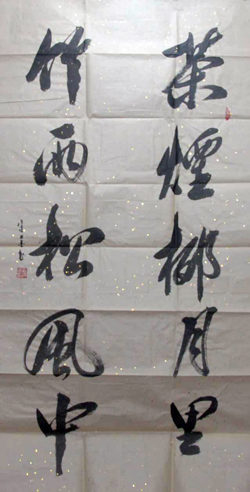 茶煙柳月里
竹雨松風中